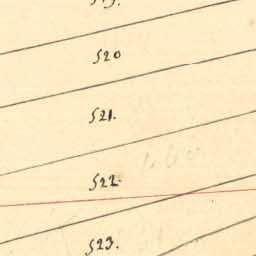 520
521.
522.
523.